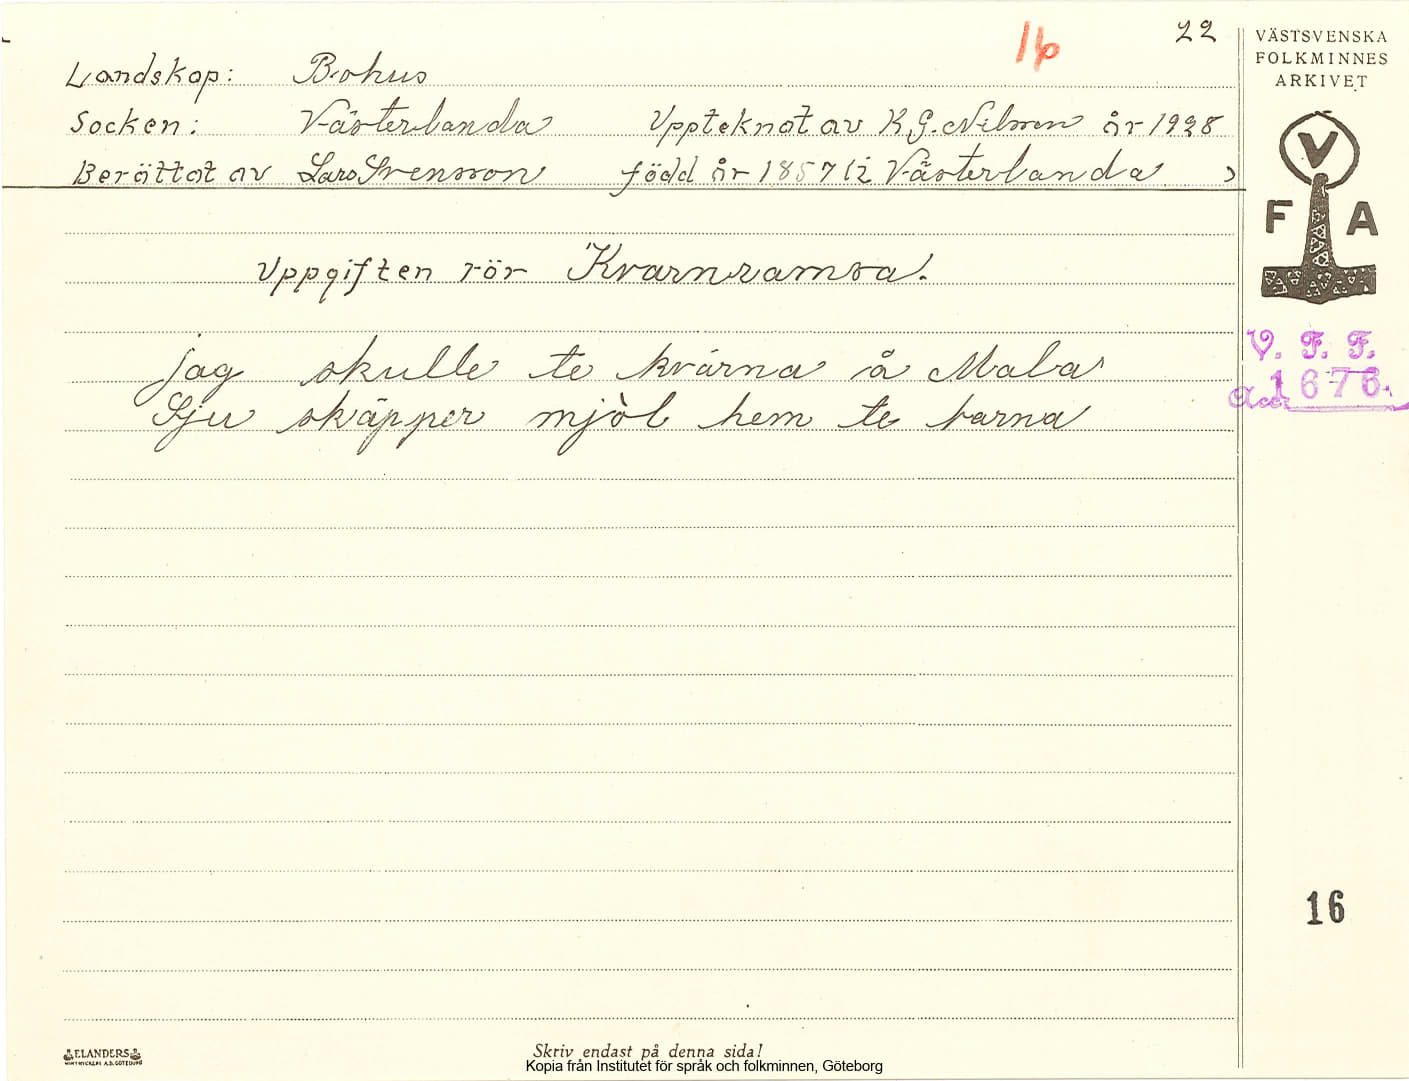 16
22
Landskap: Bohus
Socken: Västerlanda Upptecknat av K.G. Nilsson år 1928
Berättat av Lars Svensson född år 1857 (i Västerlanda )
Uppgiften rör Kvarnramsa.
Jag skulle te kvärna å Mala
Sju skäpper mjöl hem te barna
VÄSTSVENSKA
FOLKMINNES
ARKIVET
V
F A
V. F. F.
Acc. 1676.
16
ELANDERS
Skriv endast på denna sida!
Kopia från Institutet för språk och folkminnen, Göteborg